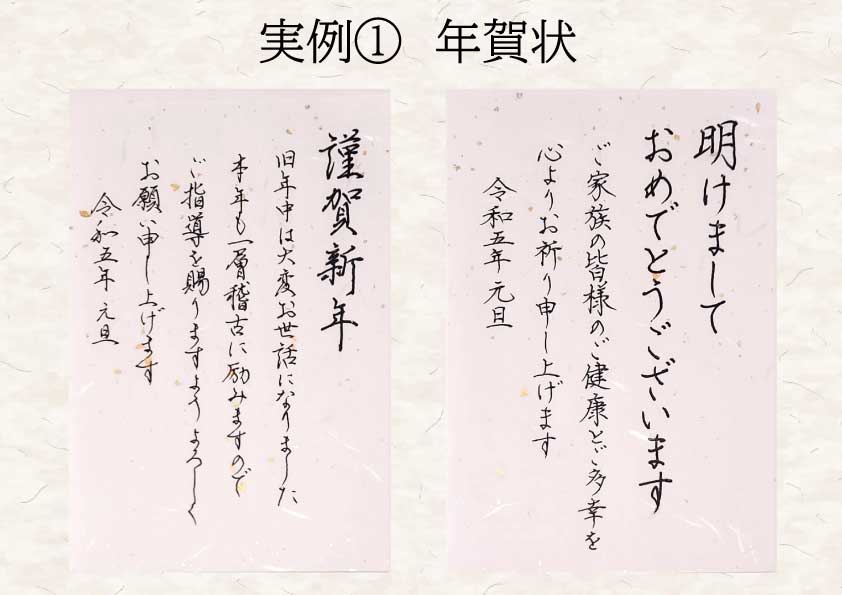 実例① 年賀状
明けまして
おめでとうございます
ご家族の皆様のご健康とご多幸を
心よりお祈り申し上げます
令和五年 元旦
謹賀新年
旧年中は大変お世話になりました
本年も一層稽古に励みますので
ご指導を賜りますよう よろしく
お願い申し上げます
令和五年 元旦